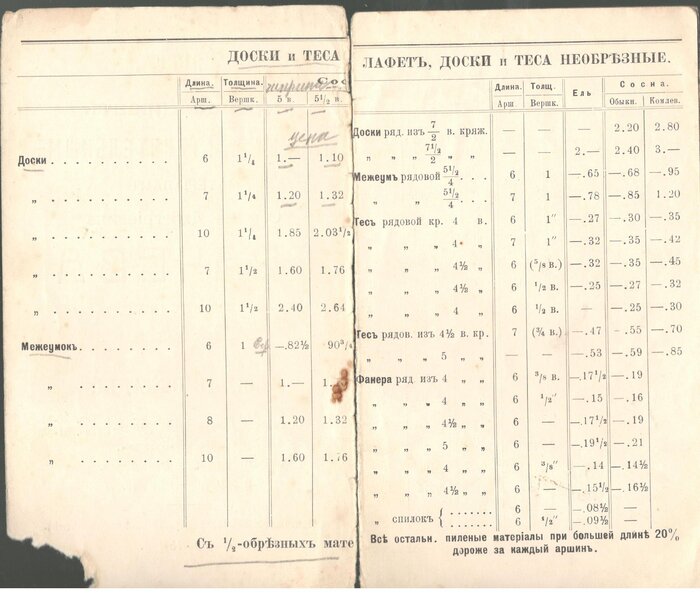 ДОСКИ и ТЕСА
Длина. Толщина. ширина Сос
Арш. Вершк. 5 в. 5 1/2 в.
цена
Доски . . . . . . . . . . 6 1 1/4 1.— 1.10
„ . . . . . . . . . 7 1 1/4 1.20 1.32
„ . . . . . . . . . 10 1 1/4 1.85 2.03 1/2
„ . . . . . . . . . 7 1 1/2 1.60 1.76
„ . . . . . . . . . 10 1 1/2 2.40 2.64
Межеумокъ. . . . . . . . 6 1 —.82 1/2 90 3/4
„ . . . . . . . . 7 — 1.— 1.
„ . . . . . . . . 8 — 1.20 1.32
„ . . . . . . . . 10 — 1.60 1.76
Съ 1/2-обрѣзныхъ мате
ЛАФЕТЪ, ДОСКИ и ТЕСА НЕОБРѢЗНЫЕ.
Длина. Толщ. Ель Сосна.
Арш Вершк. Обыкн. Комлев.
Доски ряд. изъ 7/2 в. кряж. — — — 2.20 2.80
„ „ „ 7 1/2/2 „ „ — — 2.— 2.40 3.—
Межеум рядовой 5 1/2/4 . . . 6 1 —.65 —.68 —.95
„ „ 5 1/2/4 . . . 7 1 —.78 —.85 1.20
Тесъ рядовой кр. 4 в. 6 1″ —.27 —.30 —.35
„ „ „ 4 „ 7 1″ —.32 —.35 —.42
„ „ „ 4 1/2 „ 6 (5/8 в.) —.32 —.35 —.45
„ „ „ 4 1/2 „ 6 1/2 в. —.25 —.27 —.32
„ „ „ 4 „ 6 1/2 в. — —.25 —.30
Тесъ рядов. изъ 4 1/2 в. кр. 7 (3/4 в.) —.47 —.55 —.70
„ „ „ 5 „ „ — — —.53 —.59 —.85
Фанера ряд. изъ 4 „ „ 6 3/8 в. —.17 1/2 —.19
„ „ „ 4 „ „ 6 1/2″ —.15 —.16
„ „ „ 4 1/2 „ „ 6 — —.17 1/2 —.19
„ „ „ 5 „ „ 6 — —.19 1/2 —.21
„ „ „ 4 „ „ 6 3/8″ —.14 —.14 1/2
„ „ „ 4 1/2 „ „ 6 — —.15 1/2 —.16 1/2
„ спилокъ { . . . . . . 6 — —.08 1/2 —
. . . . . . 6 1/2″ —.09 1/2 —
Всѣ остальн. пиленые матеріалы при большей длинѣ 20%
дороже за каждый аршинъ.